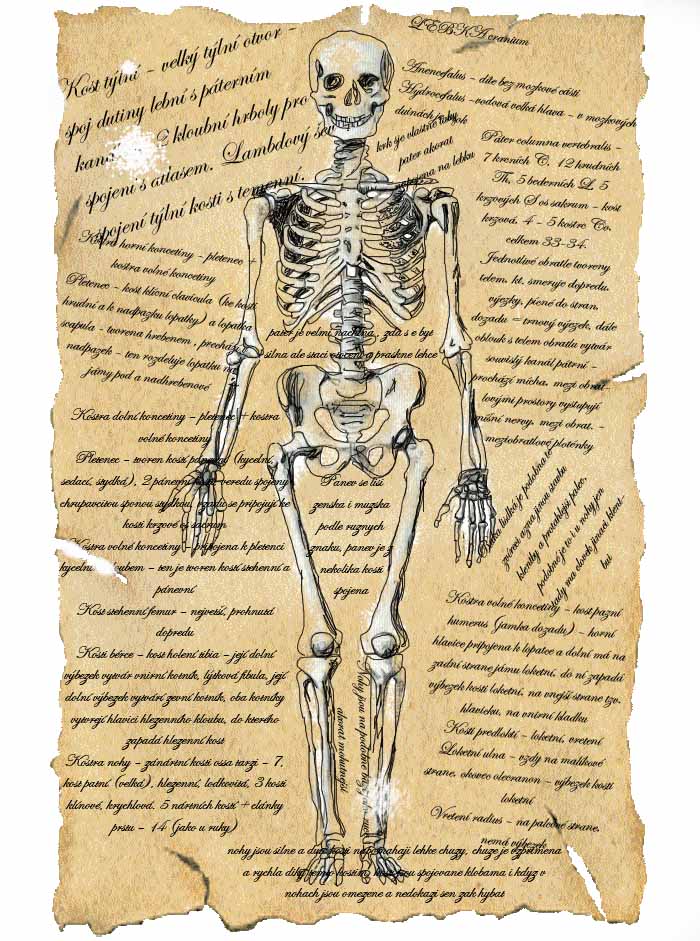 LEBKA cranium
Kost týlní - velký týlní otvor -
spoj dutiny lební s páterním
2 kloubní hrboly pro
spojení s atlasem. Lambdový šev
spojení týlní kosti s temenní.
Anencefalus - díte bez mozkové cásti
Hydrocefalus - vodová velká hlava - v mozkových
dutinách
krk je vlastne
pater akorat
na lebku
Páter columna vertebralis -
7 krcních C, 12 hrudních
Th, 5 bederních L, 5
krzových S os sakrum - kost
krzová, 4 - 5 kostrc Co,
celkem 33-34.
Jednotlivé obratle tvoreny
telem, kt. smeruje dopredu,
výjezky, pícné do stran,
dozadu = trnový výjezek, dále
oblouk s telem obratlu vytvár
souvislý kanál pátrní -
prochází mícha, mezi obrat-
lovými prostory vystupují
míšní nervy, mezi obrat. -
meziobratlové ploténky
Kostra horní koncetiny - pletenec +
kostra volné koncetiny
Pletenec - kost klícní clavicula (ke kosti
hrudní a k nadpazku lopatky) a lopatka
scapula - tvorena hrebenem, prechází
nadpazek - ten rozdeluje lopatku na
jámy pod a nadhrebenové
pater je velmi nachilna, zdá s e byt
silna ale staci otoceni a praskne lehce
Kostra dolní koncetiny - pletenec + kostra
volné koncetiny
Pletenec - tvoren kostí pánevní (kycelní,
sedací, stydká), 2 pánevní kosti vpredu spojeny
chrupavcitou sponou stydkou, vzadu se pripojují ke
kosti krzové os sacrum
Kostra volné koncetiny - pripojena k pletenci
kycelním kloubem - ten je tvoren kostí stehenní a
pánevní
Kost stehenní femur - nejvetší, prohnutá
dopredu
Kosti bérce - kost holení tibia - její dolní
výbezek vytvár vnirní kotník, lýtková fibula, její
dolní výbezek vytvárí zevní kotník, oba kotníky
vytvrejí hlavici hlezenního kloubu, do kterého
zapadá hlezenní kost
Kostra nohy - zánártní kosti ossa tarzi - 7,
kost patní (velká), hlezenní, lodkovitá, 3 kosti
klínové, krychlová. 5 nártních kostí + clánky
prstu - 14 (jako u ruky)
Panev se lisi
zenska i muzska
podle ruznych
znaku, panev je z
nekolika kosti
spojena
Ruka lidska je podobna te
zvireci avsa jinou stavbu
klenby a protahlejsi palec,
podobne je to i u nohy jen
tady ma clovek jinaci klent-
bu
Kostra volné koncetiny - kost pazní
humerus (jamka dozadu) - horní
hlavice pripojena k lopatce a dolní má na
zadní strane jámu loketní, do ní zapadá
výbezek kosti loketní, na vnejší strane tzv.
hlavicku, na vnirní kladku
Kosti predloktí - loketní, vretení
Loketní ulna - vzdy na malíkové
strane, okovec olecranon - výbezek kosti
loketní
Vretení radius - na palcové strane,
nemá výbezek
Nohy jsou na podobne bazi
akorat mohutnejsi
nohy jsou silne a duté kosti napomahaji lehke chuzy, chuze je vzprimena
a rychla diky temto kostim, kosti jsou spojovane klobama i kdyz v
nohach jsou omezene a nedokazi sen zak hybat